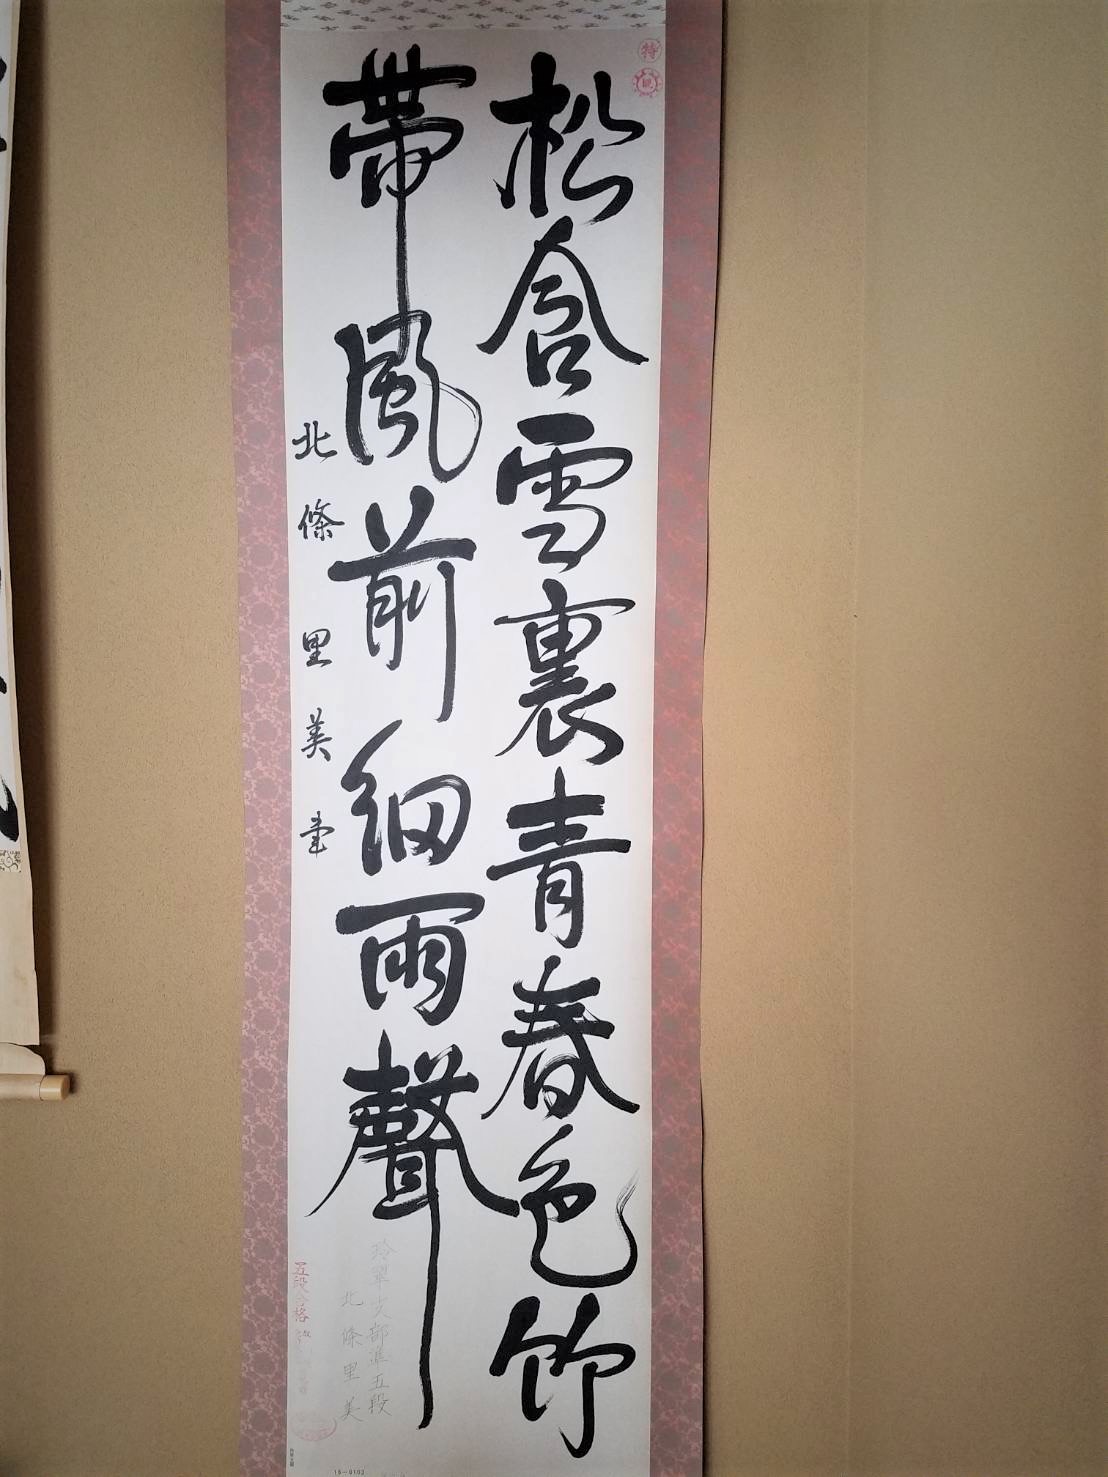 松含雪裏青春色竹
帯風前細雨聲
北條里美書
特
玲翠大部準五段
北條里美
五段合格
15-0102